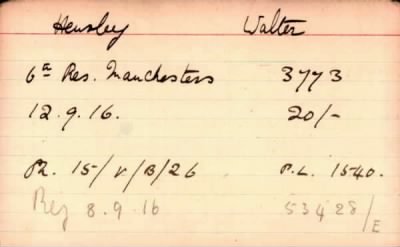 Hensley Walter
6th Res. Manchesters 3773
12.9.16. 20/-
R. 15/V/B/26 P.L. 1540.
Rej 8.9.16 53428/E